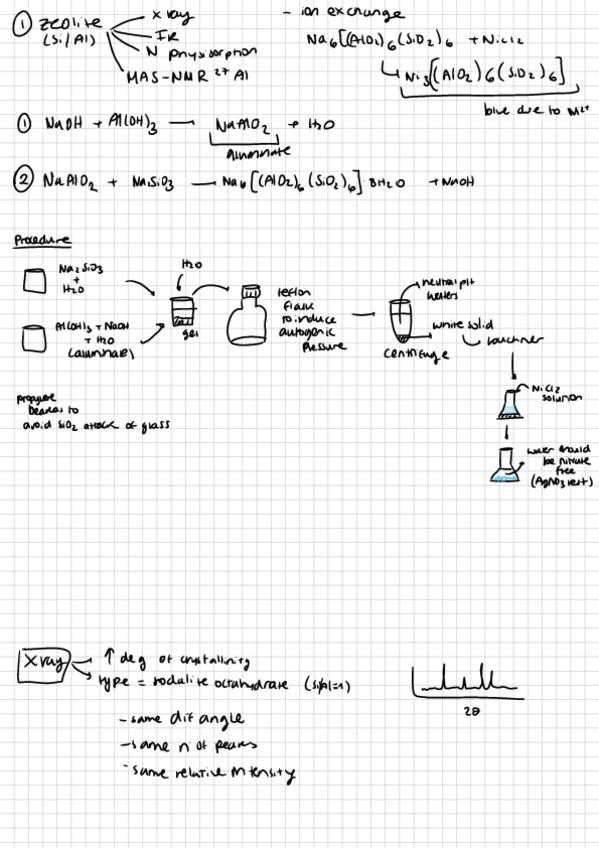 ① Zeolite
(Si/Al)
X ray
IR
N physisorption
MAS-NMR ²⁷Al
- ion exchange
Na₆[(AlO₂)₆(SiO₂)₆ + NiCl₂
Ni₃[(AlO₂)6(SiO₂)₆]
blue due to M²⁺
① NaOH + Al(OH)₃ → NaAlO₂ + H₂O
aluminate
② NaAlO₂ + NaSiO₃ → Na₆[(AlO₂)₆(SiO₂)₆]·8H₂O + NaOH
Procedure
Na₂SiO₃
+
H₂O
Al(OH)₃ + NaOH
+ H₂O
(aluminate)
H₂O
gel
teflon
flask
to induce
autogenic
pressure
neutral pH
waters
white solid
buchner
centrifuge
NiCl₂
solution
water should
be nitrate
free
(AgNO₃ test)
beakers to
avoid SiO₂ attack of glass
X ray
↑ deg of crystallinity
type = sodalite octahydrate (Si/Al=1)
- same dif angle
- same n of peaks
- same relative intensity
2θ